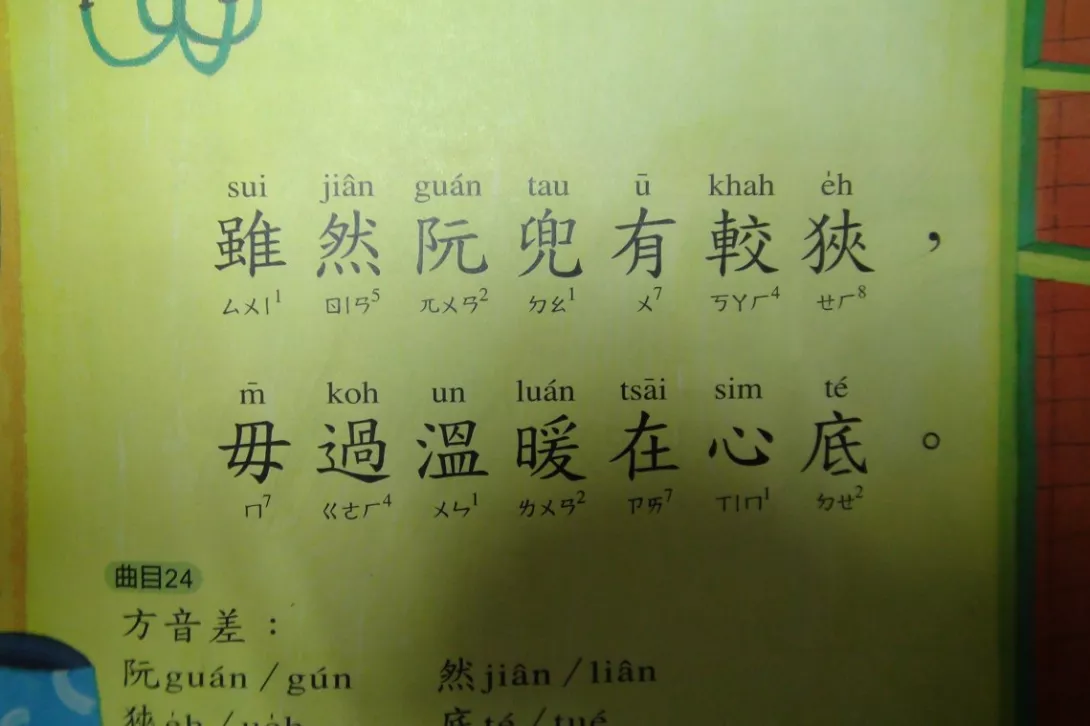 sui jiân guán tau ū khah e̍h
雖然阮兜有較狹，
ㄙㄨㄧ1 ㆡㄧㄢ5 ㆣㄨㄢ2 ㄉㄠ1 ㄨ7 ㄎㄚㄏ4 ㄝㄏ8
m̄ koh un luán tsāi sim té
毋過溫暖在心底。
ㆬ7 ㄍㄜㄏ4 ㄨㄣ1 ㄌㄨㄢ2 ㄗㄞ7 ㄒㄧㆬ1 ㄉㄝ2
曲目24
方音差：
阮guán／gún 然jiân／liân
狹e̍h／ue̍h 底té／tué